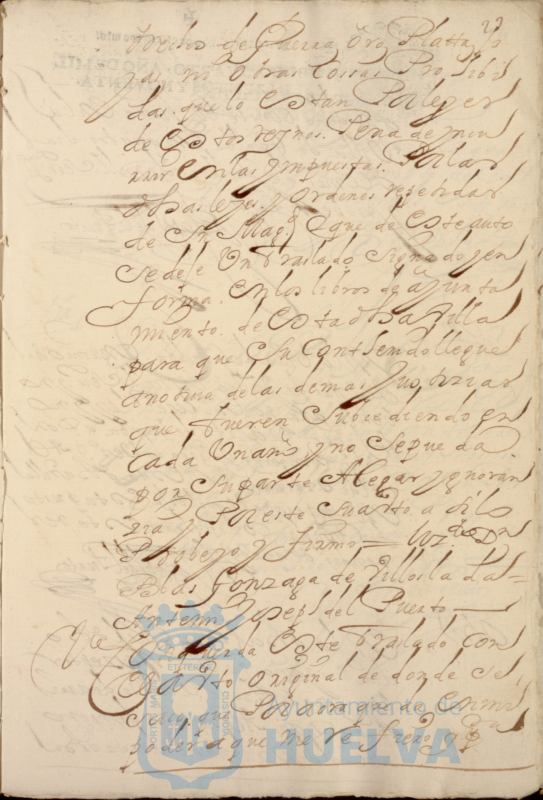 23
de Guerra Oro, Platta, y
otras Cossas Proibi
das. que lo Estan Por leyes
de Estos reynos. Pena de yncu
rrir En las ympuestas. Por las
dhas leyes. y Ordenes repetidas
de Su Mag.d Y que de Este auto
Se dele Un traslado Signado y en
forma. En los libros de ayunta
miento. de Esta dha Villa
para que Su Contt.do llegue
a notizia de las demas Justizias
que fueren Subcediendo en
Cada Un año y no Se pueda
Por Su parte Alegar ygnoran
zia y Por este Su auto a Si lo
Probeyo y firmo = Liz.do Dn
Blas Gonzaga de Villosla da =
Anttemi Joseph del Puerto
Concuerda Este traslado con
El auto Original de donde Se
Saco que Por aora queda En mi
poder a que me refiero y
Ayuntamiento de
HUELVA